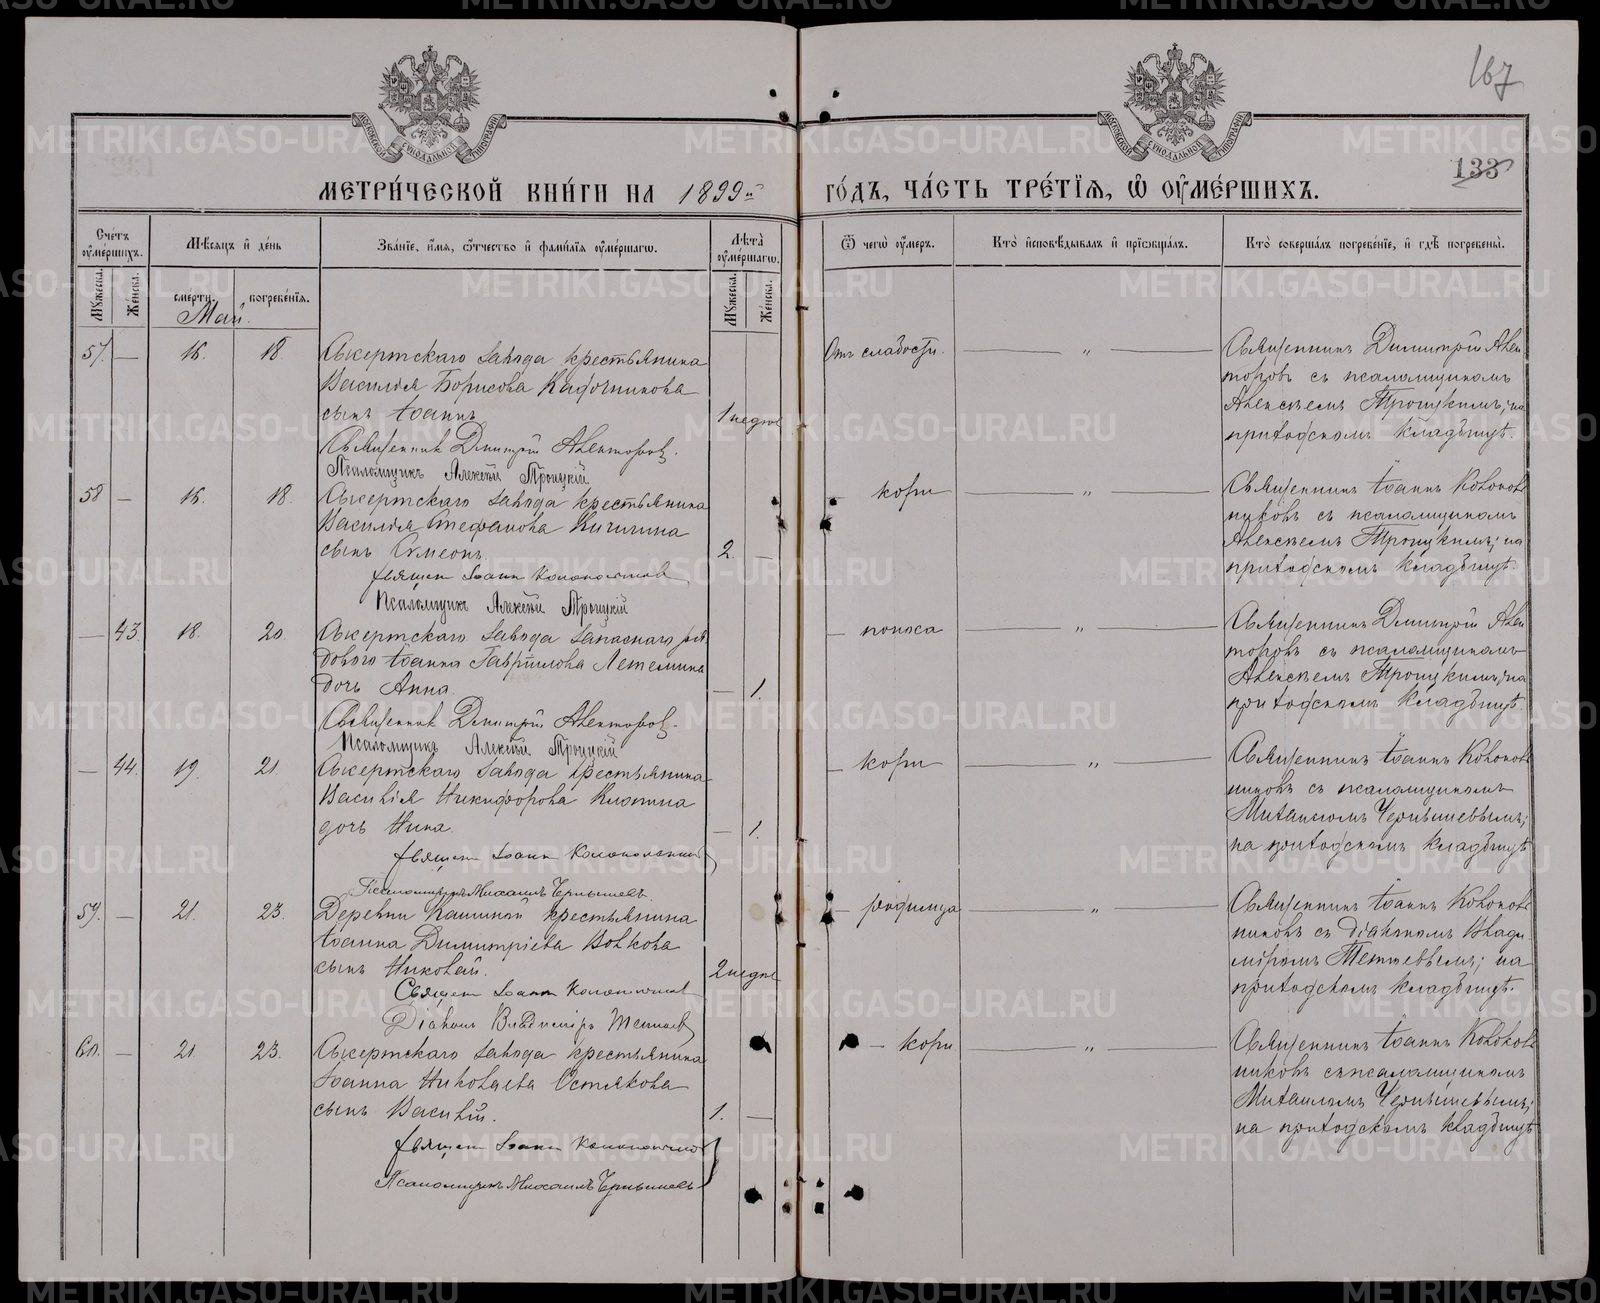 167
133
МОСКОВСКОЙ СѴНОДАЛЬНОЙ ТИПОГРАФІИ
МОСКОВСКОЙ СѴНОДАЛЬНОЙ ТИПОГРАФІИ
МЕТРИ́ЧЕСКОЙ КНИ́ГИ НА 1899й ГО́ДЪ, ЧА́СТЬ ТРЕ́ТЇЯ, Ѡ҆ ОУ҆МЕ́РШИХЪ.
Сче́тъ оу҆ме́ршихъ.
Мѣ́сяцъ и҆ де́нь
Зва́нїе, и҆́мя, ѻ҆́тчество и҆ фами́лїя оу҆ме́ршагѡ.
Лѣ́та оу҆ме́ршагѡ.
Ѿ чегѡ̀ оу҆́меръ.
Кто̀ и҆сповѣ́дывалъ и҆ прїѡбща́лъ.
Кто̀ соверша́лъ погребе́нїе, и҆ гдѣ̀ погребены̀.
Му́жеска. Же́нска. сме́рти. погребе́нїя. Му́жеска. Же́нска.
Май.
57. — 16. 18. Сысертскаго завода крестьянина
Василія Борисова Кадочникова
сынъ Іоаннъ 1 недѣл
Священник Дмитрій Алекторов.
Псаломщикъ Алексѣй Троицкій
Отъ слабости. — „ —
Священникъ Димитрій Алек
торовъ съ псаломщикомъ
Алексѣемъ Троицкимъ; на
приходскомъ кладбищѣ.
58 — 16. 18. Сысертскаго завода крестьянина
Василія Стефанова Кичигина
сынъ Симеонъ. 2. —
Священ Іоанн Колокольников
Псаломщик Алексѣй Троицкій
— кори — „ —
Священникъ Іоаннъ Колоколь
никовъ съ псаломщикомъ
Алексѣемъ Троицкимъ; на
приходскомъ кладбищѣ.
— 43. 18. 20. Сысертскаго завода запаснаго ря
доваго Іоанна Гаврілова Летемина
дочь Анна. — 1.
Священник Дмитрій Алекторов.
Псаломщикъ Алексѣй Троицкій
— поноса — „ —
Священникъ Димитрій Алек
торовъ съ псаломщикомъ
Алексѣемъ Троицкимъ; на
приходскомъ кладбищѣ.
— 44. 19. 21. Сысертскаго завода крестьянина
Василія Никифорова Клопина
дочь Нина. — 1.
Священ Іоанн Колокольников
Псаломщикъ Михаилъ Чернышевъ.
— кори — „ —
Священникъ Іоаннъ Колоколь
никовъ съ псаломщикомъ
Михаиломъ Чернышевымъ;
на приходскомъ кладбищѣ
59. — 21. 23. Деревни Кашиной крестьянина
Іоанна Димитріева Волкова
сынъ Николай. 2 недѣл
Священ Іоанн Колокольников
Діаконъ Владиміръ
— родимца — „ —
Священникъ Іоаннъ Колоколь
никовъ съ діакономъ Влади
міромъ на
приходскомъ кладбищѣ.
60. — 21. 23. Сысертскаго завода крестьянина
Іоанна Николаева Остякова
сынъ Василій. 1. —
Священ Іоанн Колокольников
Псаломщикъ Михаилъ Чернышевъ
— кори — „ —
Священникъ Іоаннъ Колоколь
никовъ съ псаломщикомъ
Михаиломъ Чернышевымъ;
на приходскомъ кладбищѣ
METRIKI.GASO-URAL.RU